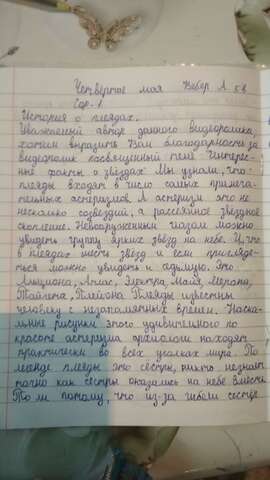 Четвертое мая Вебер Л 5в
Стр. 1
История о плеядах.
Уважаемый автор данного видеоролика,
хотим выразить Вам благодарность за
видеоролик посвященный теме Интерес-
ные факты о звёздах. Мы узнали, что
плеяды входят в число самых примеча-
тельных астеризмов. А астеризм это не
несколько созвездий, а рассеянное звездное
скопление. Невооруженным глазом можно
увидеть группу ярких звёзд на небе. И что
в плеядах шесть звезд и если пригляде-
ться можно увидеть и седьмую. Это
Альциона, Атлас, Электра, Майя, Меропа,
Тайгета, Плейона Плеяды известны
человеку с незапамятных времен. Наска-
льные рисунки этого удивительного по
красоте астеризма археологи находят
практически во всех уголках мира. По
легенде плеяды это сёстры, никто не знает
точно как сёстры оказались на небе вместе
То ли потому, что из-за гибели сестёр